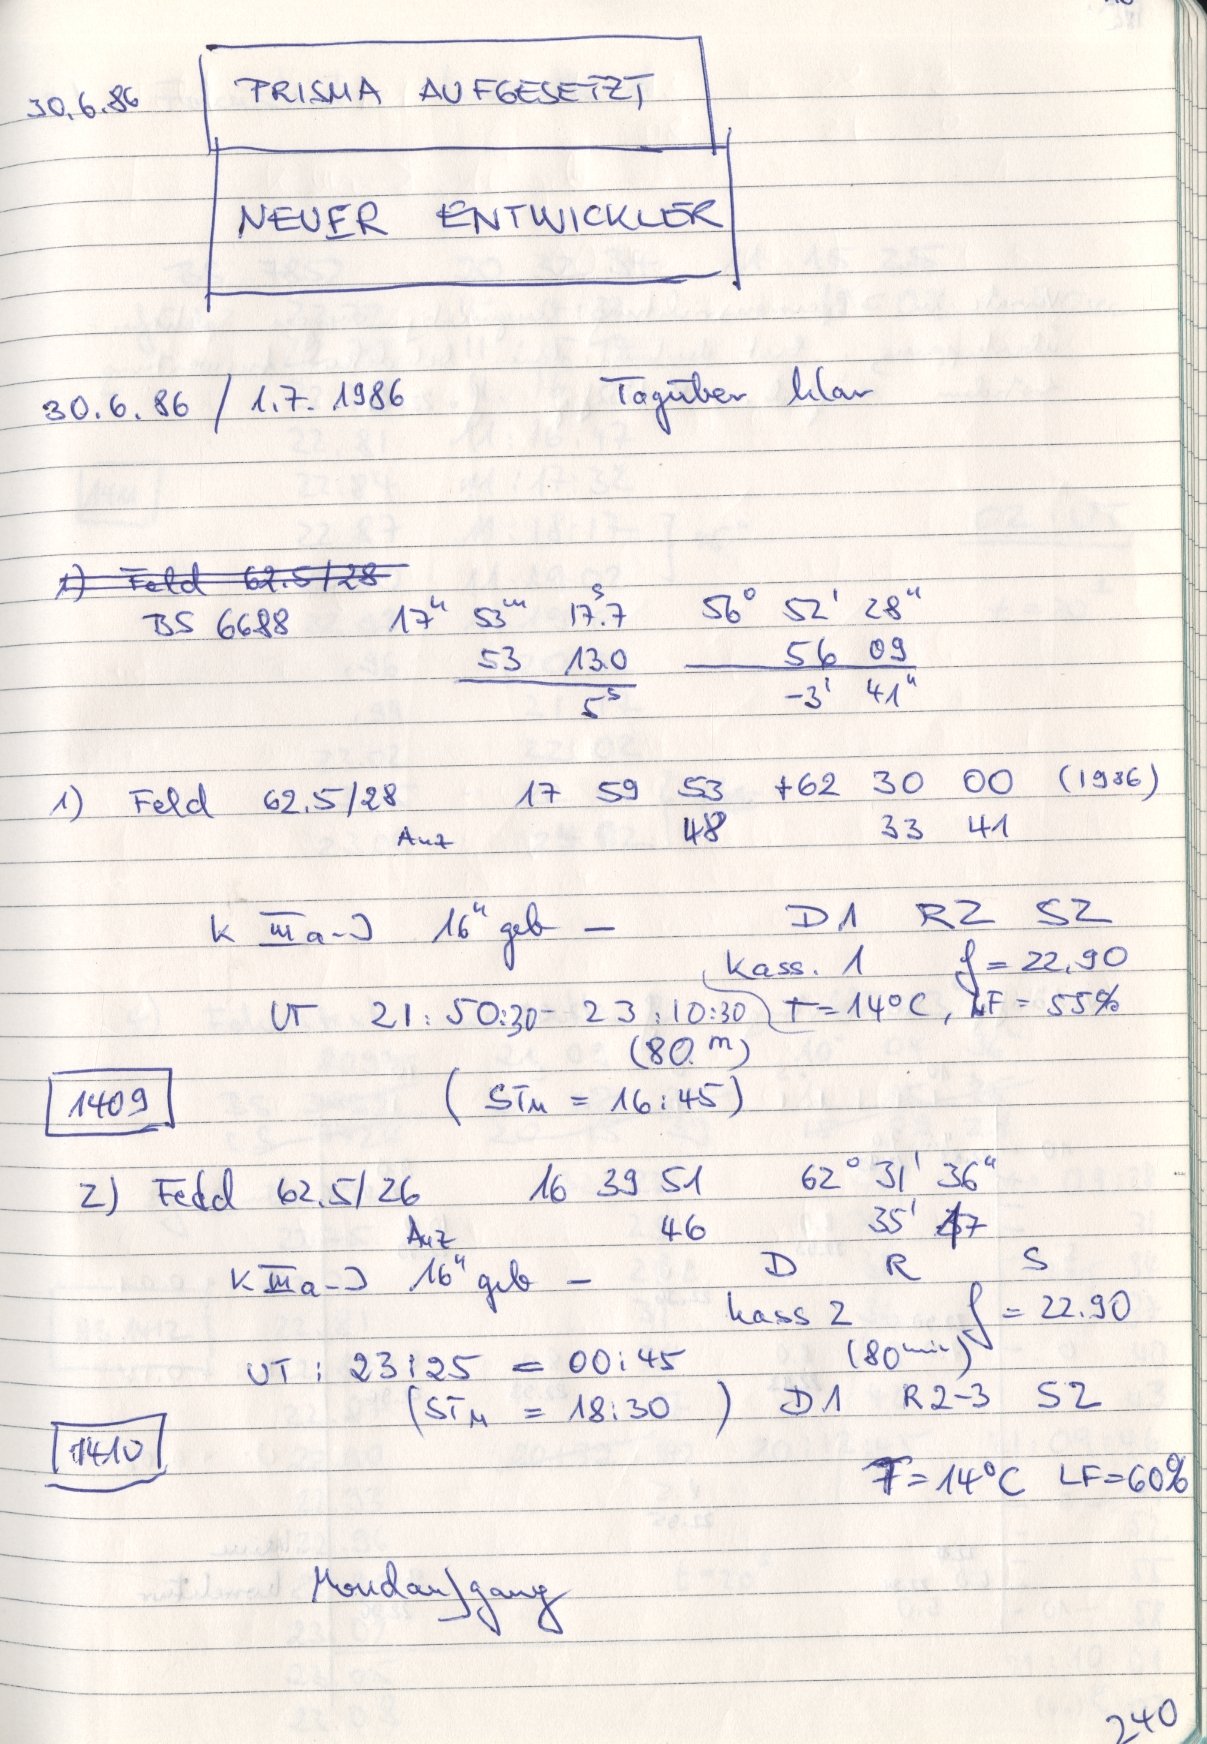 30.6.86 PRISMA AUFGESETZT
NEUER ENTWICKLER
30.6.86 / 1.7.1986 Tagüber klar
1) Feld 62.5/28
BS 6688 17h 53m 17.7s 56° 52' 28"
53 13.0 56 09
5s -3' 41"
1) Feld 62.5/28 17 59 53 +62 30 00 (1986)
Anz 48 33 41
K IIIa-J 16h geb — D1 R2 S2
Kass. 1 f = 22.90
UT 21:50:30 - 23:10:30 T = 14°C, LF = 55%
(80 m)
1409 (STM = 16:45)
2) Feld 62.5/26 16 39 51 62° 31' 36"
Anz 46 35' 17
K IIIa-J 16h geb — D R S
Kass 2 f = 22.90
UT: 23:25 - 00:45 (80min)
(STM = 18:30) D1 R2-3 S2
1410
T = 14°C LF = 60%
Mondaufgang
240